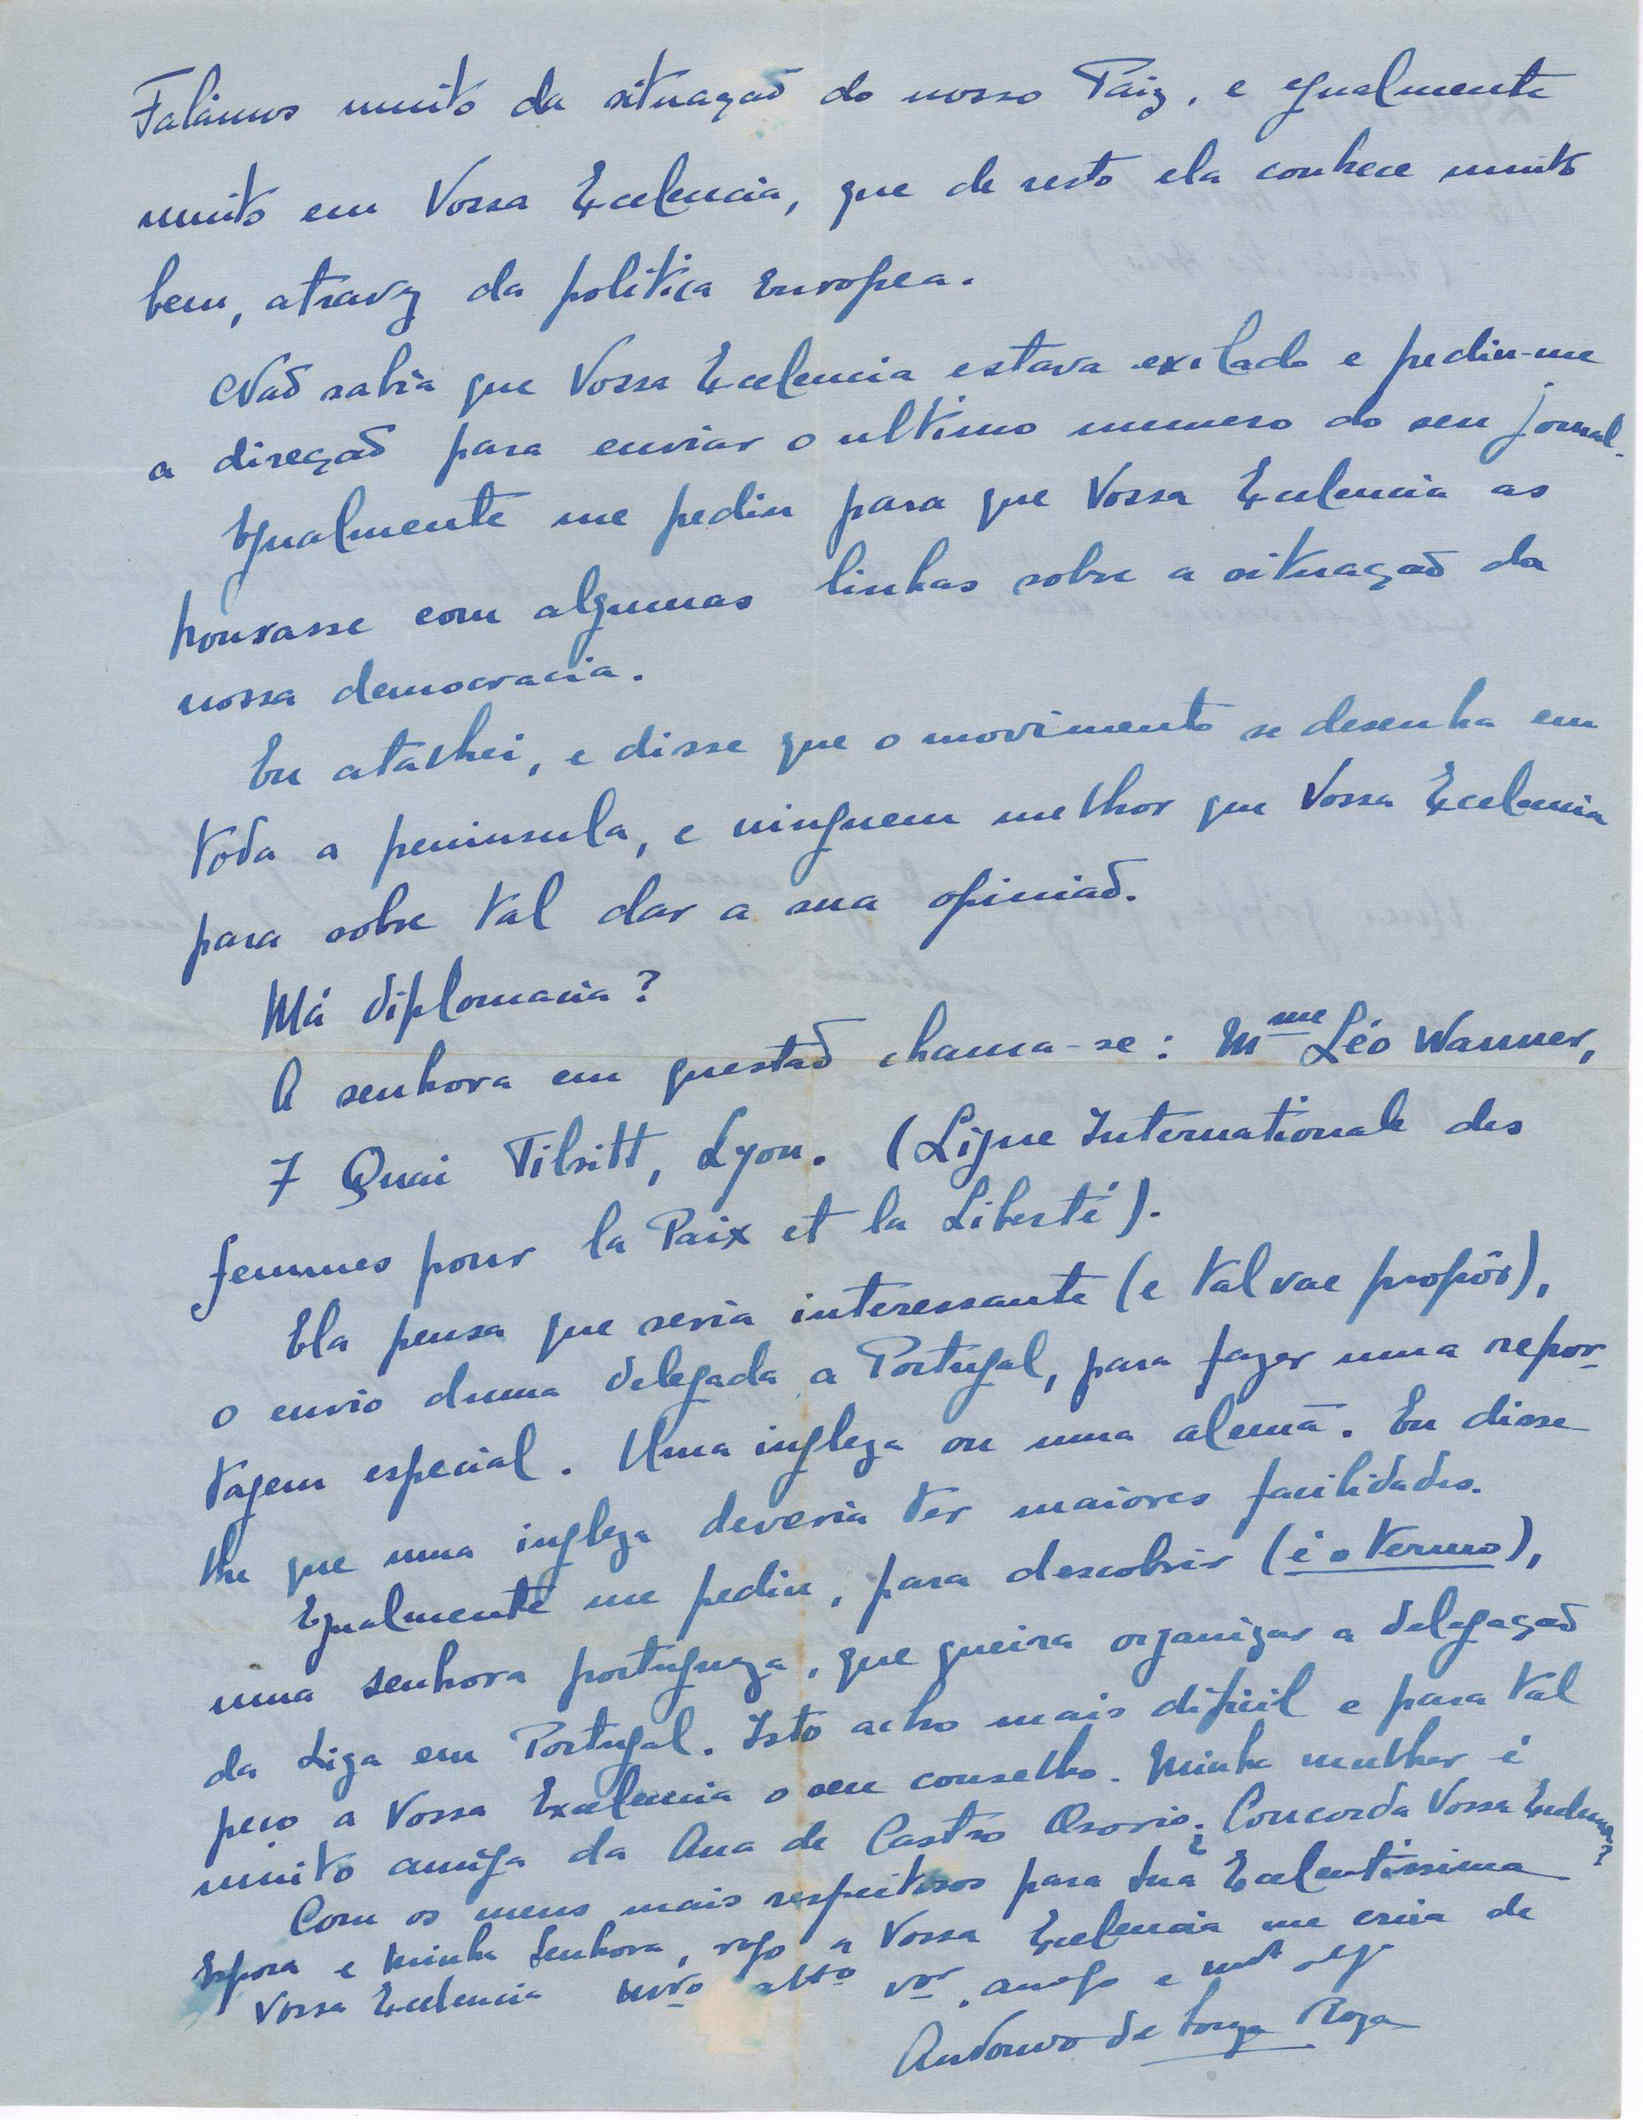 Falámos muito da situação do nosso Paiz, e egualmente
muito em Vossa Ecelencia, que de resto ela conhece muito
bem, atravez da politica Europea.
Não sabia que Vossa Ecelencia estava exilado e pediu-me
a direção para enviar o ultimo numero do seu jornal.
Egualmente me pediu para que Vossa Ecelencia as
honrasse com algumas linhas sobre a situação da
nossa democracia.
Eu atalhei, e disse que o movimento se desenha em
toda a peninsula, e ninguem melhor que Vossa Ecelencia
para sobre tal dar a sua opinião.
Má diplomacia?
A senhora em questão chama-se: Mme Léo Wanner,
7 Quai Tilsitt, Lyon. (Ligue Internationale des
femmes pour la Paix et la Liberté).
Ela pensa que seria interessante (e tal vae propôr),
o envio duma delegada a Portugal, para fazer uma repor-
tagem especial. Uma ingleza ou uma alemã. Eu disse
lhe que uma ingleza deveria ter maiores facilidades.
Egualmente me pediu, para descobrir (é o termo),
uma senhora portugueza, que queira organizar a delegação
da Liga em Portugal. Isto acho mais dificil e para tal
peço a Vossa Excelencia o seu conselho. Minha mulher é
muito amiga da Ana de Castro Osorio. ¿Concorda Vossa Ecelencia?
Com os meus mais respeitosos para Sua Ecelentissima
Espora e Minha Senhora, rogo a Vossa Ecelencia me creia de
Vossa Ecelencia atto vor amigo e
Antonio de Souza Roza